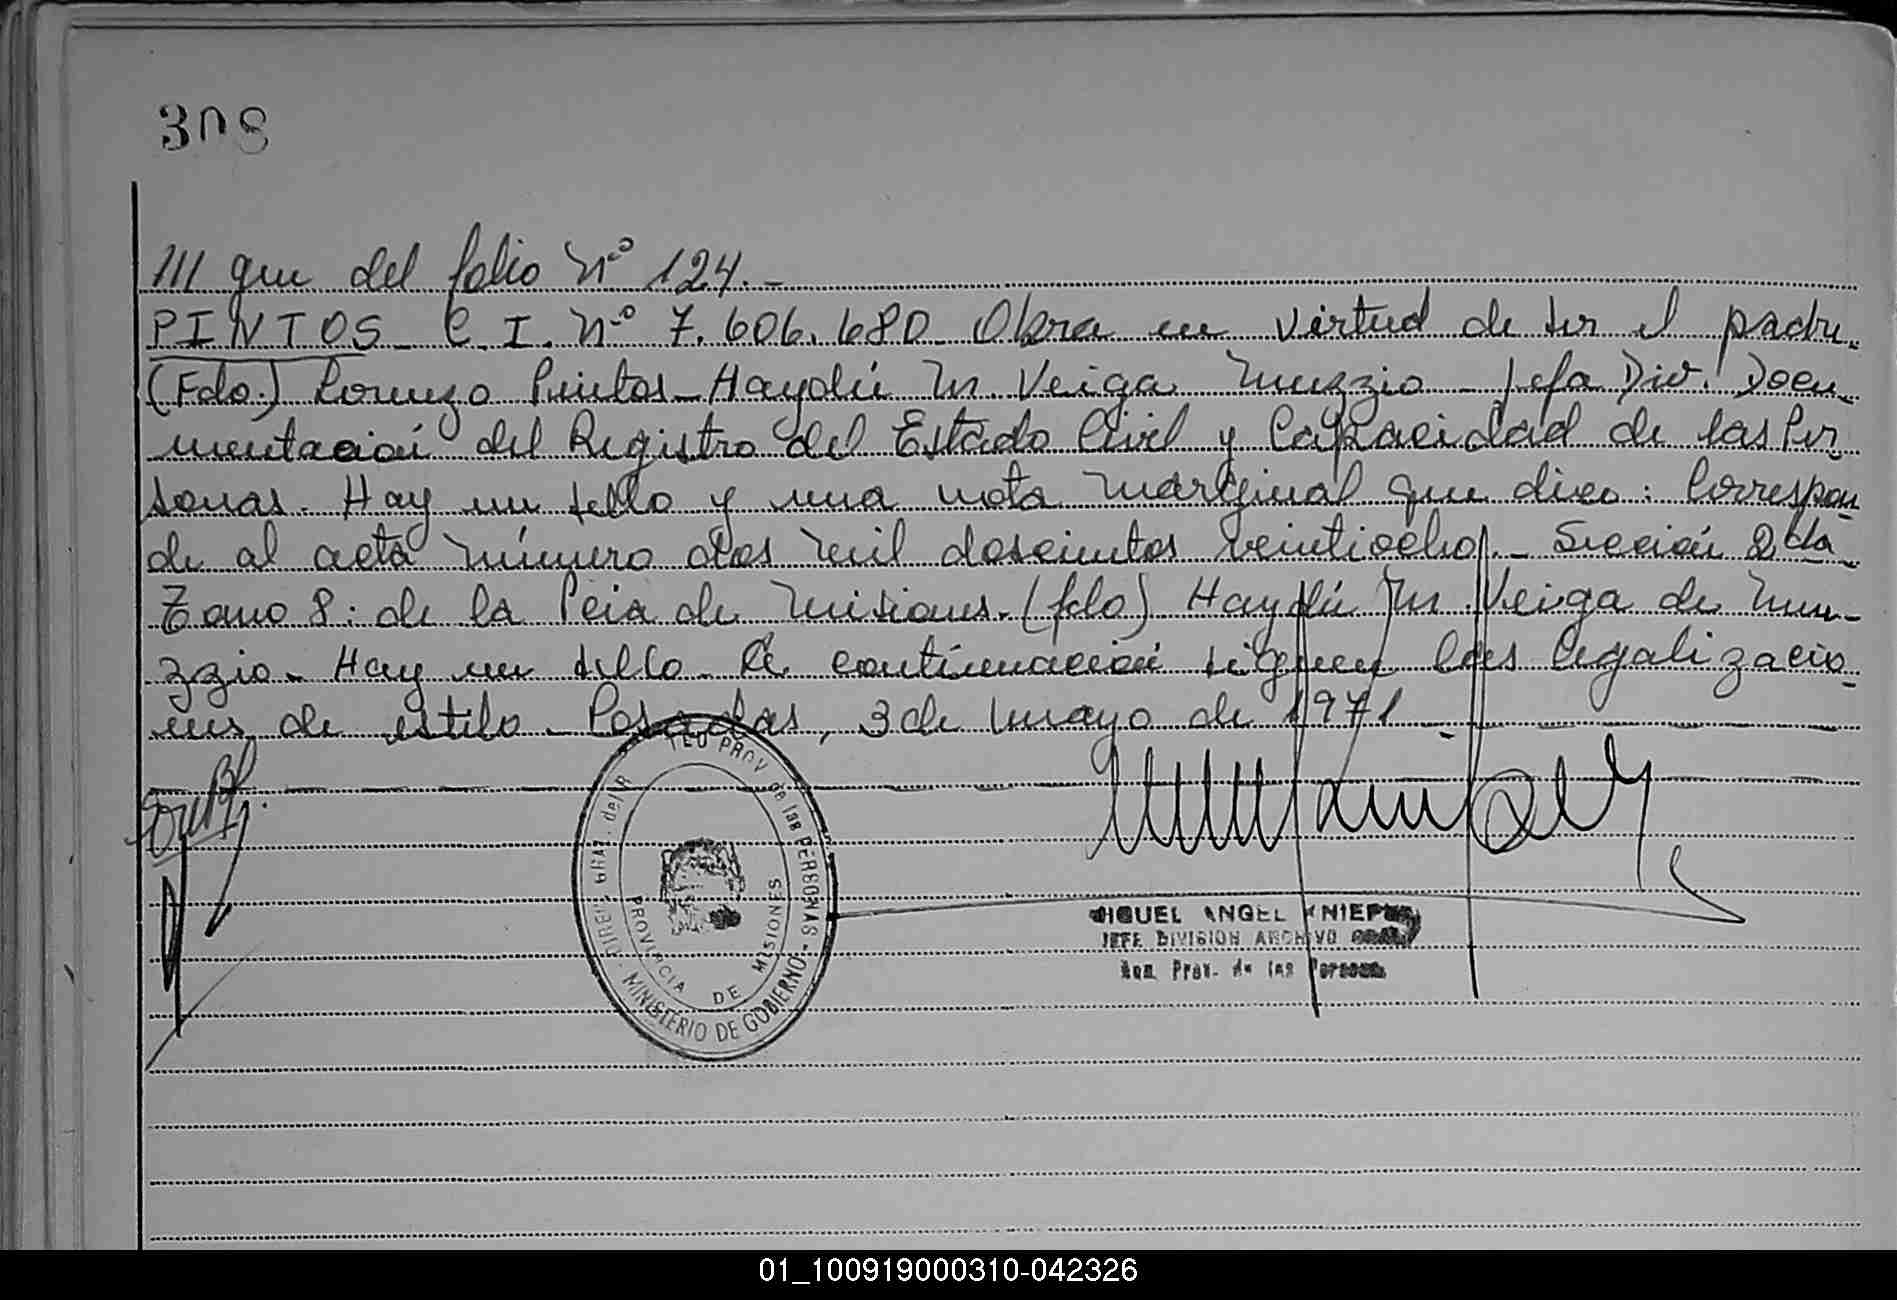 308
/// que del folio Nº 124.-
PINTOS_ C.I. Nº 7.606.680_ Obra en virtud de ser el padre.
(Fdo.) Lorenzo Pintos_ Haydée M. Veiga Muzzio _ Jefa Div. Docu_
mentación del Registro del Estado Civil y Capacidad de las Per_
sonas. Hay un sello y una nota marginal que dice: Correspon_
de al acta número dos mil doscientos veintiocho. _ Sección 2da_
Tomo 8: de la Pcia de Misiones. (fdo) Haydée M. Veiga de Mu_
zzio_ Hay un sello_ A continuación siguen las legalizacio_
nes de estilo_ Posadas, 3 de mayo de 1971_
PROV de las PERSONAS
MINISTERIO DE GOBIERNO
PROVINCIA DE MISIONES
MIGUEL ANGEL
JEFE DIVISION ARCHIVO GRAL
Prov. de las Personas
01_100919000310-042326